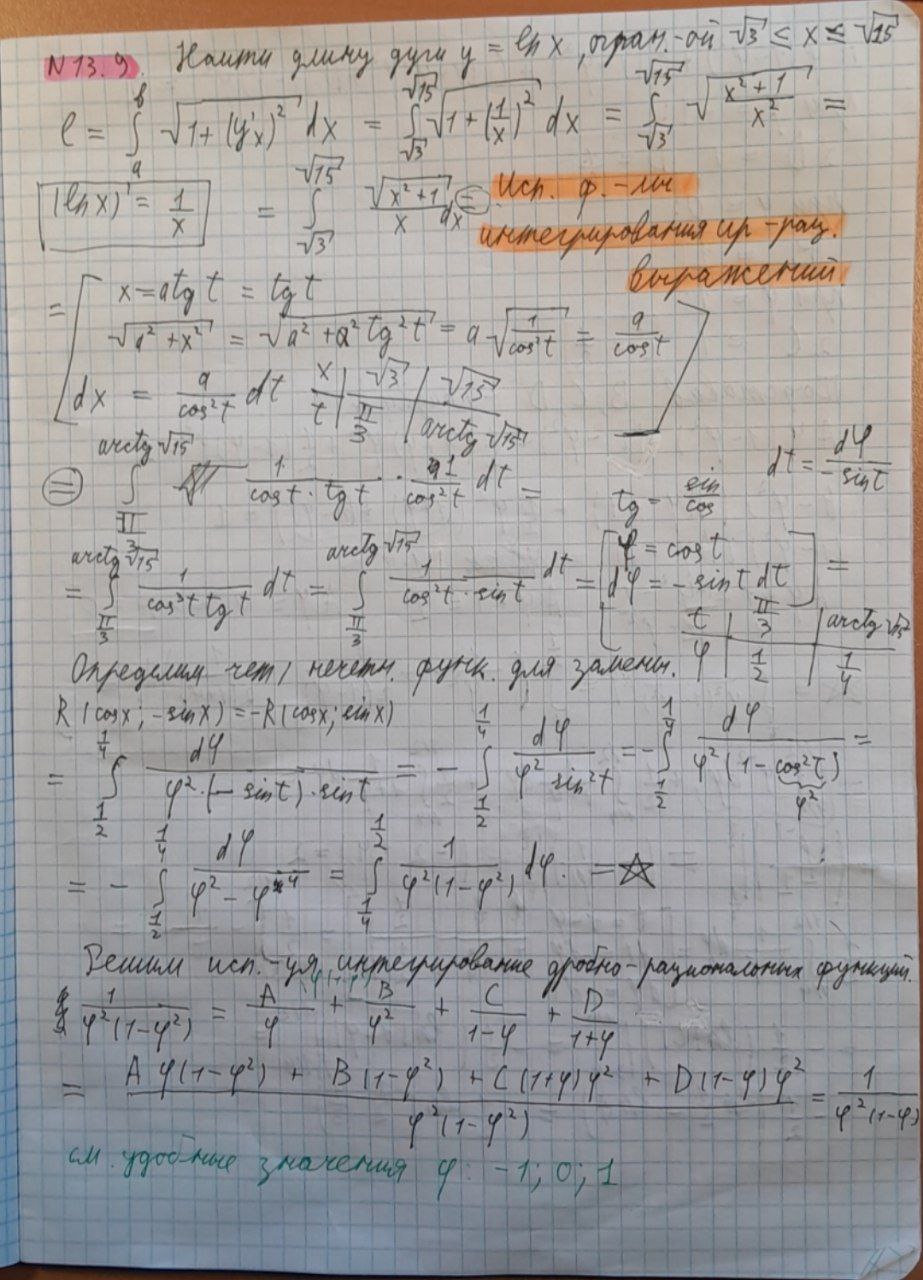 N 13.9. Найти длину дуги y = ln x, огран.-ой √3 ≤ x ≤ √15
l = ∫_a^b √(1 + (y'x)²) dx = ∫_{√3}^{√15} √(1 + (1/x)²) dx = ∫_{√3}^{√15} √((x² + 1)/x²) =
(ln x)' = 1/x = ∫_{√3}^{√15} √(x² + 1)/x dx = Исп. ф.-лы
интегрирования ир-рац.
выражений
= [ x = a tg t = tg t
√(a² + x²) = √(a² + a² tg² t) = a √(1/cos² t) = a/cos t
dx = a/cos² t dt x | √3 | √15
t | π/3 | arctg √15 ]
= ∫_{π/3}^{arctg √15} 1/(cos t · tg t) · 1/cos² t dt = tg = sin/cos dt = dφ/(- sin t)
= ∫_{π/3}^{arctg √15} 1/(cos³ t tg t) dt = ∫_{π/3}^{arctg √15} 1/(cos² t · sin t) dt = [ φ = cos t
dφ = - sin t dt ] =
t | π/3 | arctg √15
φ | 1/2 | 1/4
Определим чет/нечетн. функ. для замены.
R (cos x; - sin x) = -R (cos x; sin x)
= ∫_{1/2}^{1/4} dφ/(φ² · (- sin t) · sin t) = - ∫_{1/2}^{1/4} dφ/(φ² sin² t) = - ∫_{1/2}^{1/4} dφ/(φ² (1 - cos² t)) =
φ²
= - ∫_{1/2}^{1/4} dφ/(φ² - φ⁴) = ∫_{1/4}^{1/2} 1/(φ² (1 - φ²)) dφ. = ☆
Решим исп.-уя интегрирование дробно-рациональных функций.
1/(φ² (1 - φ²)) = A/φ + B/φ² + C/(1 - φ) + D/(1 + φ)
= (A φ(1 - φ²) + B(1 - φ²) + C(1 + φ) φ² + D(1 - φ) φ²)/(φ² (1 - φ²)) = 1/(φ² (1 - φ)
см. удобные значения φ: -1; 0; 1